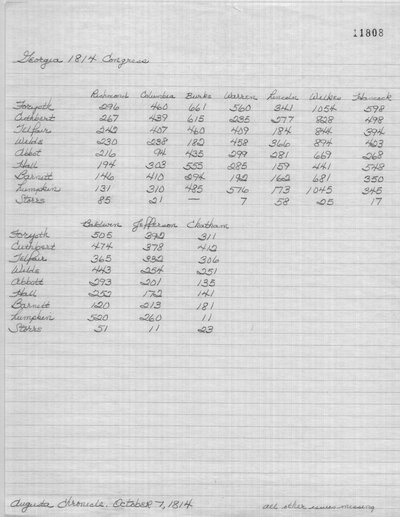 11808
Georgia 1814 Congress
Richmond Columbia Burke Warren Lincoln Wilkes Hancock
Forsyth 296 460 661 560 341 1054 598
Cuthbert 267 439 615 235 277 828 498
Telfair 242 407 460 409 184 844 394
Wilds 230 238 182 458 366 894 423
Abbot 216 94 435 299 281 669 268
Hall 194 303 555 285 159 441 548
Barnett 146 410 294 192 162 681 350
Lumpkin 131 310 485 576 173 1045 345
Storrs 85 21 — 7 58 25 17
Baldwin Jefferson Chatham
Forsyth 505 392 311
Cuthbert 474 378 412
Telfair 365 332 306
Wilds 443 254 251
Abbott 293 201 135
Hall 252 172 141
Barnett 120 213 181
Lumpkin 520 260 11
Storrs 51 11 23
Augusta Chronicle. October 7, 1814
all other issues missing